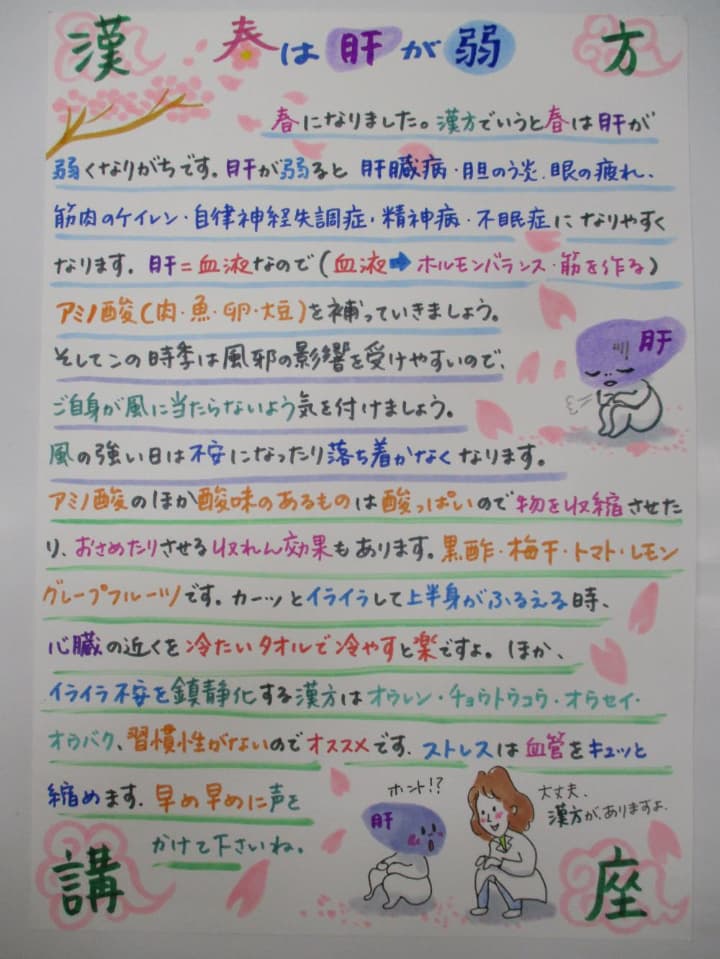 漢方
春は肝が弱
春になりました。漢方でいうと春は肝が
弱くなりがちです。肝が弱ると 肝臓病・胆のう炎・眼の疲れ、
筋肉のケイレン・自律神経失調症・精神病・不眠症になりやすく
なります。肝=血液なので(血液➡ホルモンバランス・筋を作る)
アミノ酸(肉・魚・卵・大豆)を補っていきましょう。
そしてこの時季は風邪の影響を受けやすいので、
ご自身が風に当たらないよう気を付けましょう。
風の強い日は不安になったり落ち着かなくなります。
アミノ酸のほか酸味のあるものは酸っぱいので物を収縮させた
り、おさめたりさせる収れん効果もあります。黒酢・梅干・トマト・レモン
グレープフルーツです。カーッとイライラして上半身がふるえる時、
心臓の近くを冷たいタオルで冷やすと楽ですよ。ほか、
イライラ不安を鎮静化する漢方はオウレン・チョウトウコウ・オウセイ・
オウバク、習慣性がないのでオススメです。ストレスは血管をキュッと
縮めます。早め早めに声を
かけて下さいね。
肝
ホント!?
肝
大丈夫、
漢方が、ありますよ。
講座